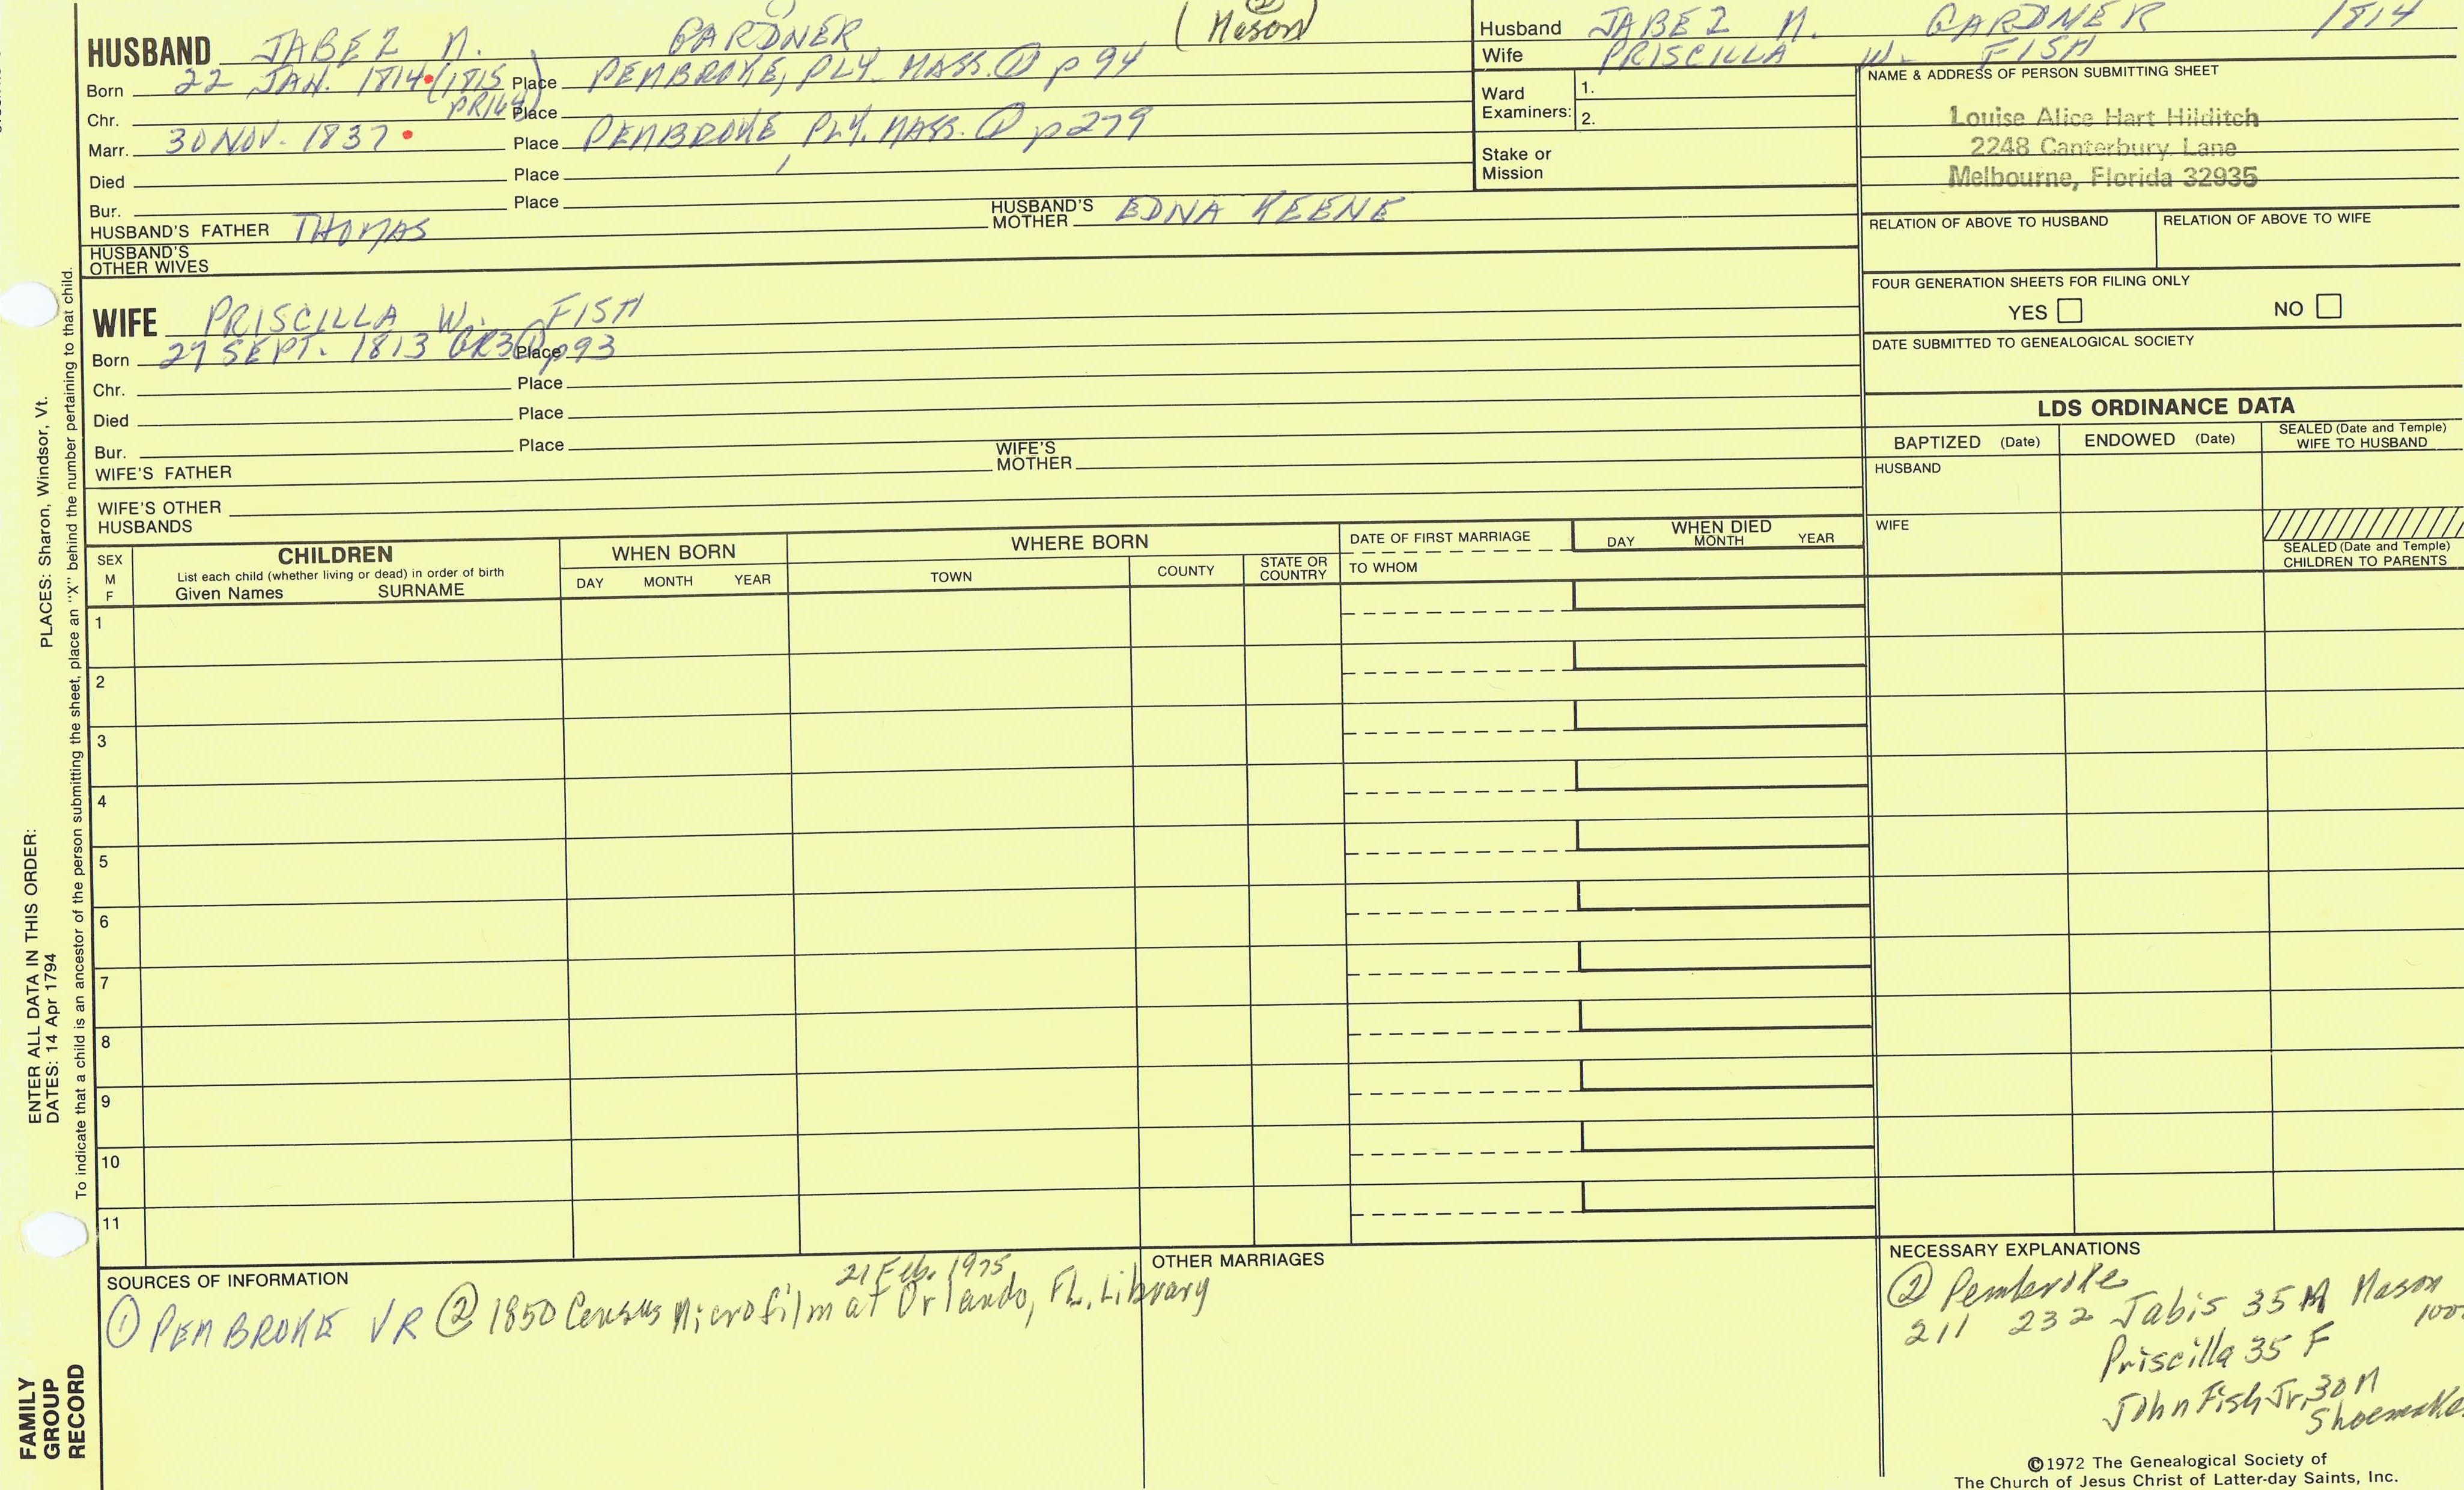 HUSBAND JABEZ N. GARDNER (Mason)
Born 22 JAN. 1814 (1815 PR164) Place PEMBROKE, PLY. MASS. ① p 94
Chr. Place
Marr. 30 NOV. 1837 Place PEMBROKE, PLY. MASS. ① p 279
Died Place
Bur. Place
HUSBAND'S FATHER THOMAS HUSBAND'S MOTHER EDNA KEENE
HUSBAND'S OTHER WIVES
WIFE PRISCILLA W. FISH
Born 27 SEPT. 1813 GR3 ① Place p 93
Chr. Place
Died Place
Bur. Place
WIFE'S FATHER WIFE'S MOTHER
WIFE'S OTHER HUSBANDS
Husband JABEZ N. GARDNER 1814
Wife PRISCILLA W. FISH
Ward Examiners: 1.
2.
Stake or Mission
NAME & ADDRESS OF PERSON SUBMITTING SHEET
Louise Alice Hart Hilditch
2248 Canterbury Lane
Melbourne, Florida 32935
RELATION OF ABOVE TO HUSBAND RELATION OF ABOVE TO WIFE
FOUR GENERATION SHEETS FOR FILING ONLY
YES NO
DATE SUBMITTED TO GENEALOGICAL SOCIETY
LDS ORDINANCE DATA
BAPTIZED (Date) ENDOWED (Date) SEALED (Date and Temple) WIFE TO HUSBAND
HUSBAND
WIFE
SEALED (Date and Temple) CHILDREN TO PARENTS
SEX M F
CHILDREN
List each child (whether living or dead) in order of birth
Given Names SURNAME
WHEN BORN
DAY MONTH YEAR
WHERE BORN
TOWN COUNTY STATE OR COUNTRY
DATE OF FIRST MARRIAGE
TO WHOM
WHEN DIED
DAY MONTH YEAR
1
2
3
4
5
6
7
8
9
10
11
SOURCES OF INFORMATION
21 Feb. 1975
① PEMBROKE VR ② 1850 Census Microfilm at Orlando, FL. Library
OTHER MARRIAGES
NECESSARY EXPLANATIONS
② Pembroke
211 232 Jabis 35 M Mason
Priscilla 35 F
John Fish Jr. 30 M
©1972 The Genealogical Society of
The Church of Jesus Christ of Latter-day Saints, Inc.
PLACES: Sharon, Windsor, Vt.
ENTER ALL DATA IN THIS ORDER:
DATES: 14 Apr 1794
To indicate that a child is an ancestor of the person submitting the sheet, place an "X" behind the number pertaining to that child.
FAMILY
GROUP
RECORD